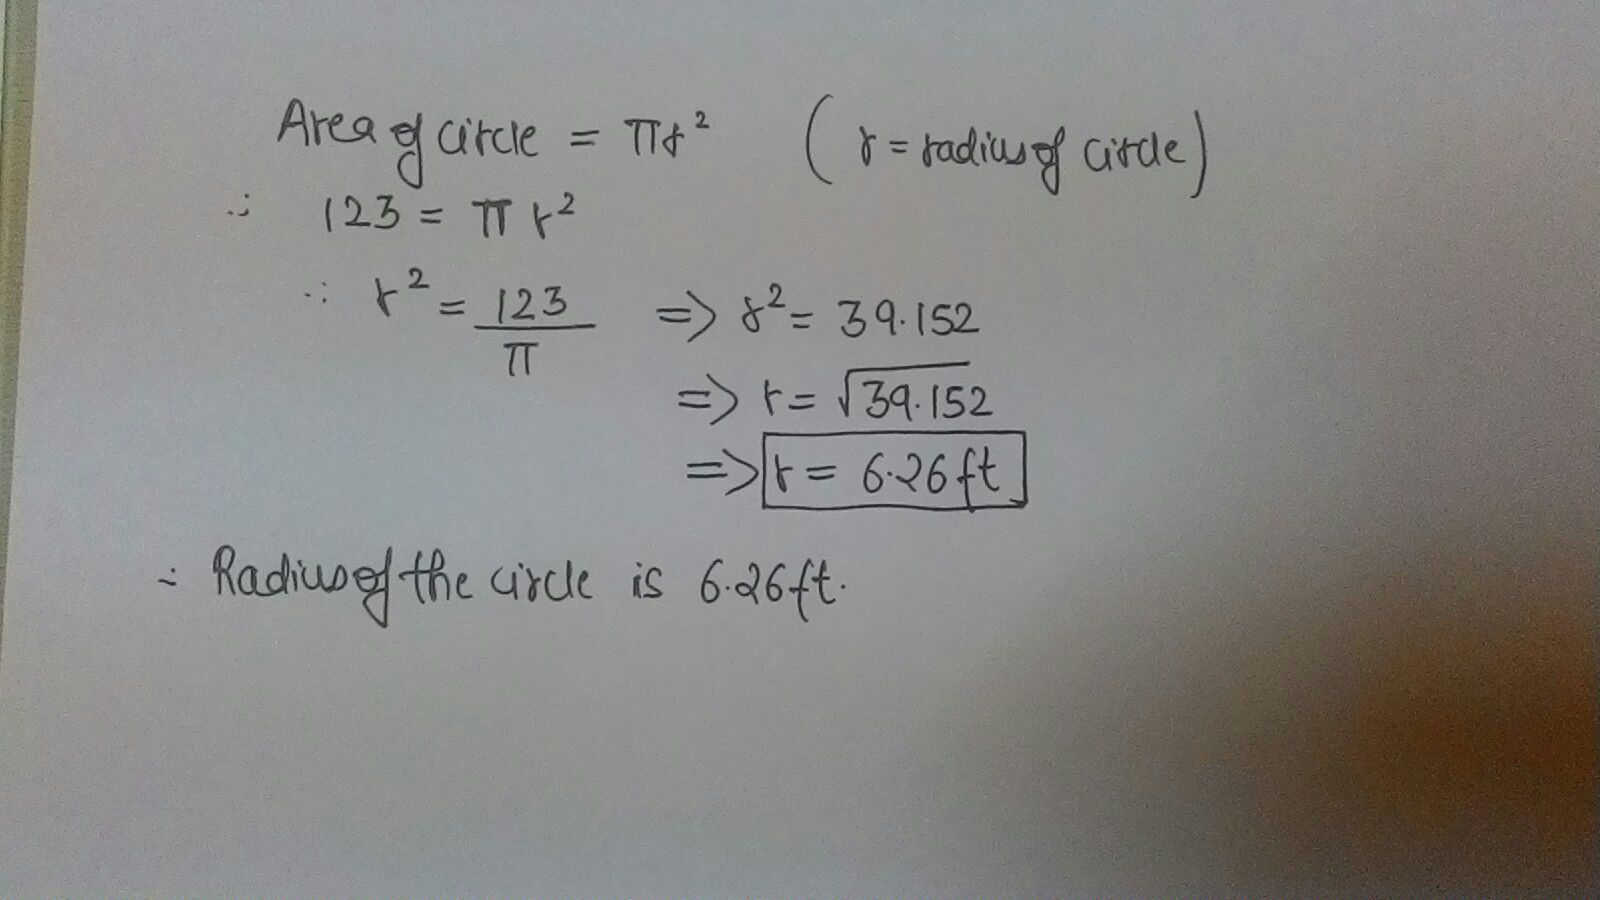 Area of circle = πr² (r = radius of circle)
∴ 123 = πr²
∴ r² = 123/π => r² = 39.152
=> r = √39.152
=> r = 6.26ft
∴ Radius of the circle is 6.26ft.